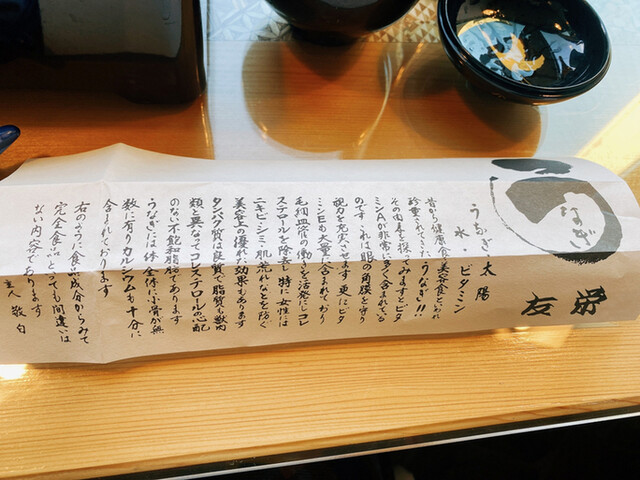 うなぎ
友栄
うなぎ・太陽
水・ビタミン
昔から健康食・美容食といわれ
珍重されてきた「うなぎ」!!
その由来を探ってみますとビタ
ミンAが非常に多く含まれている
のです これは眼の角膜を守り
視力を充実させます 更にビタ
ミンEも大量に含まれており
毛細血管の働きを活発にしコレ
ステロールを除去し 特に女性には
ニキビ・シミ・肌荒れなどを防ぐ
美容上の優れた効果もあります
タンパク質は良質で脂質も獣肉
類と異なってコレステロールの心配
のない不飽和脂肪であります
うなぎには体全体に小骨が無
数に有りカルシウムも十分に
含まれております
右のように食品成分からみて
完全食品といっても間違いは
ない内容であります
主人 敬白